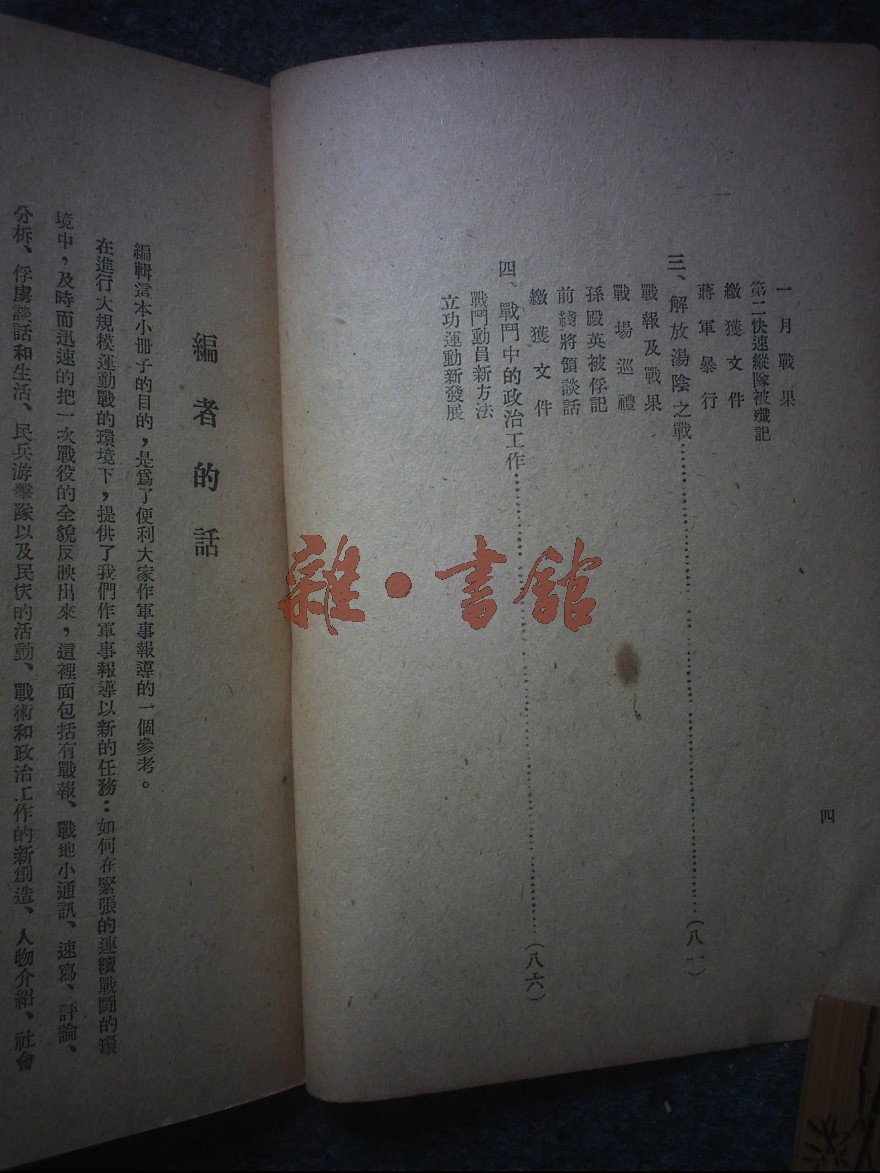 一月戰果
第二快速縱隊被殲記
繳獲文件
蔣軍暴行
三、解放湯陰之戰……(八一)
戰報及戰果
戰場巡禮
孫殿英被俘記
前綫將領談話
繳獲文件
四、戰鬥中的政治工作……(八六)
戰鬥動員新方法
立功運動新發展
四
編者的話
編輯這本小冊子的目的，是爲了便利大家作軍事報導的一個參考。
在進行大規模運動戰的環境下，提供了我們作軍事報導以新的任務：如何在緊張的連續戰鬭的環
境中，及時而迅速的把一次戰役的全貌反映出來，這裡面包括有戰報、戰地小通訊、速寫、評論、
分析、俘虜談話和生活、民兵游擊隊以及民伕的活動、戰術和政治工作的新創造、人物介紹、社會
雜·書館